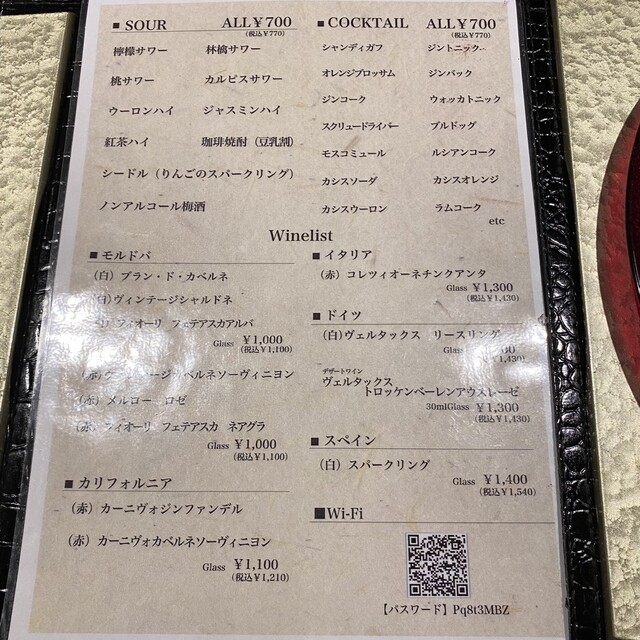 ■ SOUR ALL￥700
(税込￥770)
檸檬サワー 林檎サワー
桃サワー カルピスサワー
ウーロンハイ ジャスミンハイ
紅茶ハイ 珈琲焼酎（豆乳割）
シードル（りんごのスパークリング）
ノンアルコール梅酒
■ COCKTAIL ALL￥700
(税込￥770)
シャンディガフ ジントニック
オレンジブロッサム ジンバック
ジンコーク ウォッカトニック
スクリュードライバー ブルドッグ
モスコミュール ルシアンコーク
カシスソーダ カシスオレンジ
カシスウーロン ラムコーク
etc
Winelist
■ モルドバ
（白）ブラン・ド・カベルネ
（白）ヴィンテージシャルドネ
フィオーリ フェテアスカアルバ
Glass ￥1,000
(税込￥1,100)
（赤）カベルネソーヴィニヨン
（赤）メルロー ロゼ
（赤）フィオーリ フェテアスカ ネアグラ
Glass ￥1,000
(税込￥1,100)
■ カリフォルニア
（赤）カーニヴォジンファンデル
（赤）カーニヴォカベルネソーヴィニヨン
Glass ￥1,100
(税込￥1,210)
■ イタリア
（赤）コレツィオーネチンクアンタ
Glass ￥1,300
(税込￥1,430)
■ ドイツ
（白）ヴェルタックス リースリング
1,430)
デザートワイン
ヴェルタックス
トロッケンベーレンアウスレーゼ
30mlGlass ￥1,300
(税込￥1,430)
■ スペイン
（白）スパークリング
Glass ￥1,400
(税込￥1,540)
■Wi-Fi
【パスワード】Pq8t3MBZ